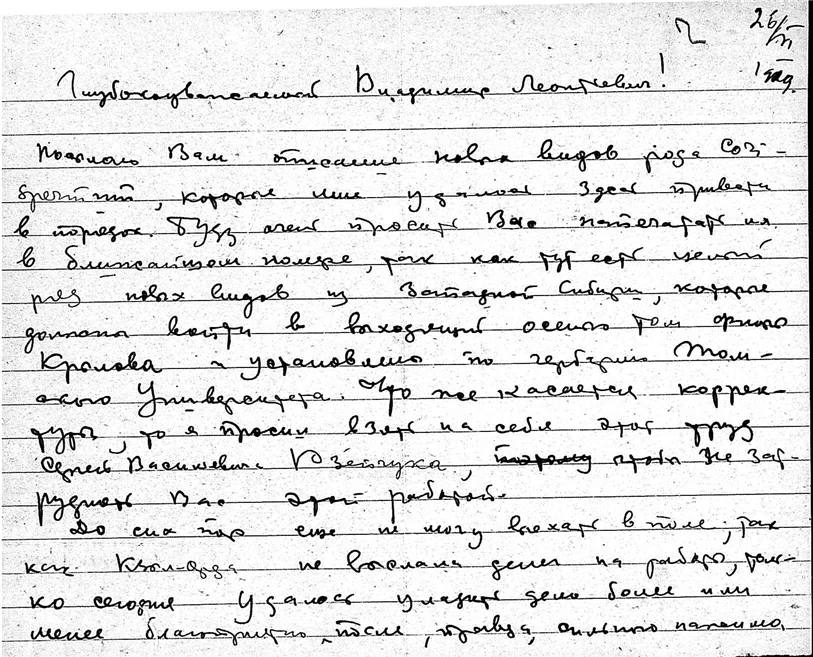 26/VI
Глубокоуважаемый Владимир Леонтьевич!
Посылаю Вам описание новых видов рода Corispermum, которые мне удалось здесь привести
в порядок. Буду очень просить Вас напечатать их
в ближайшем номере, так как тут есть целый
ряд новых видов из Западной Сибири, которые
должны войти в выходящий осенью том флоры
Крылова и установлены по гербарию Том-
ского Университета. Что же касается коррек-
туры, то я просил взять на себя этот труд
Сергея Васильевича Юзепчука, чтобы не зат-
руднять Вас этой работой.
До сих пор еще не могу выехать в поле, так
как Кзыл-Орда не выслала денег на работы, толь-
ко сегодня удалось уладить дело более или
менее благоприятно, после, правда, сильного нажима